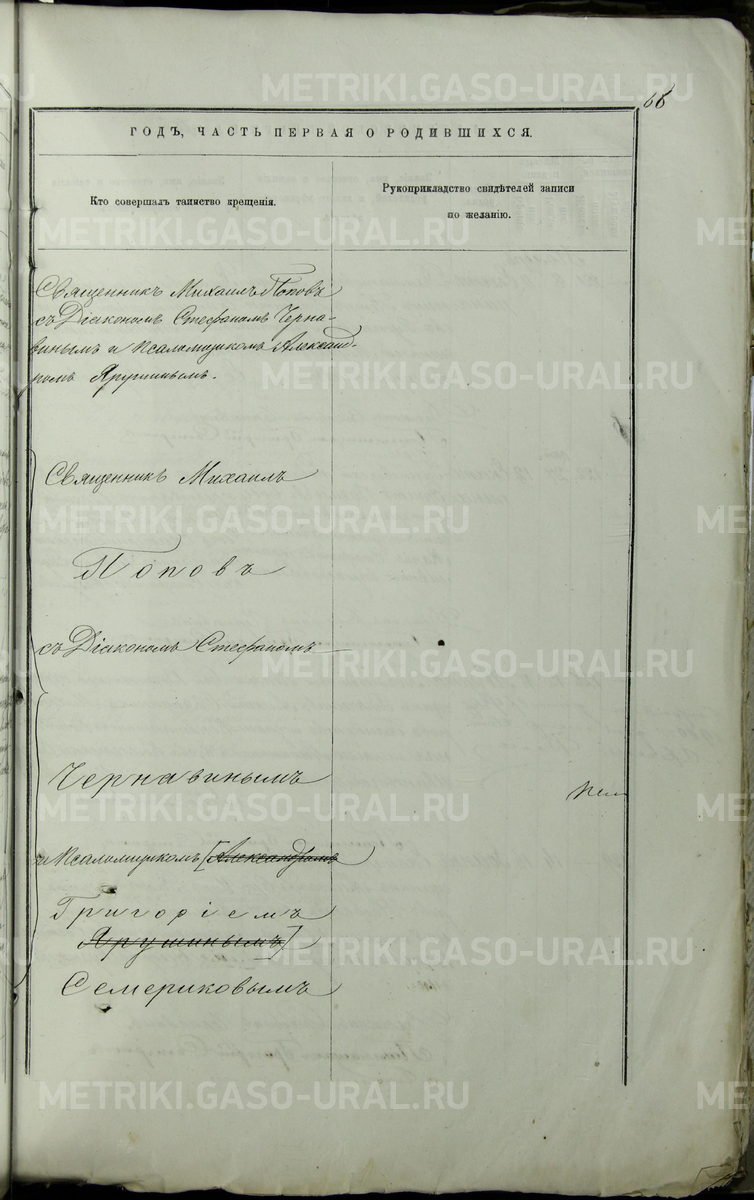 66
ГОДЪ, ЧАСТЬ ПЕРВАЯ О РОДИВШИХСЯ.
Кто совершалъ таинство крещенія.
Рукоприкладство свидѣтелей записи
по желанію.
Священникъ Михаилъ Поповъ
съ Діакономъ Стефаномъ Черна-
винымъ и Псаломщикомъ Александ-
ромъ Ярушинымъ.
Священникъ Михаилъ
Поповъ
съ Діакономъ Стефаномъ
Чернавинымъ
и Псаломщикомъ [Александромъ
Григоріемъ
Ярушинымъ]
Семериковымъ
METRIKI.GASO-URAL.RU